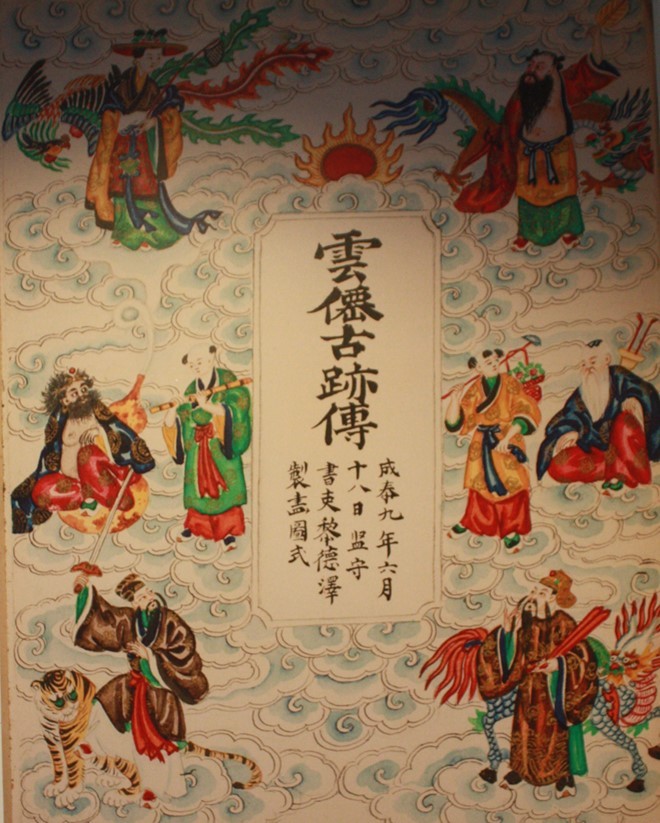 雲僊古跡傳
成泰九年六月
十八日监守
書吏黎德澤
製畵圖式